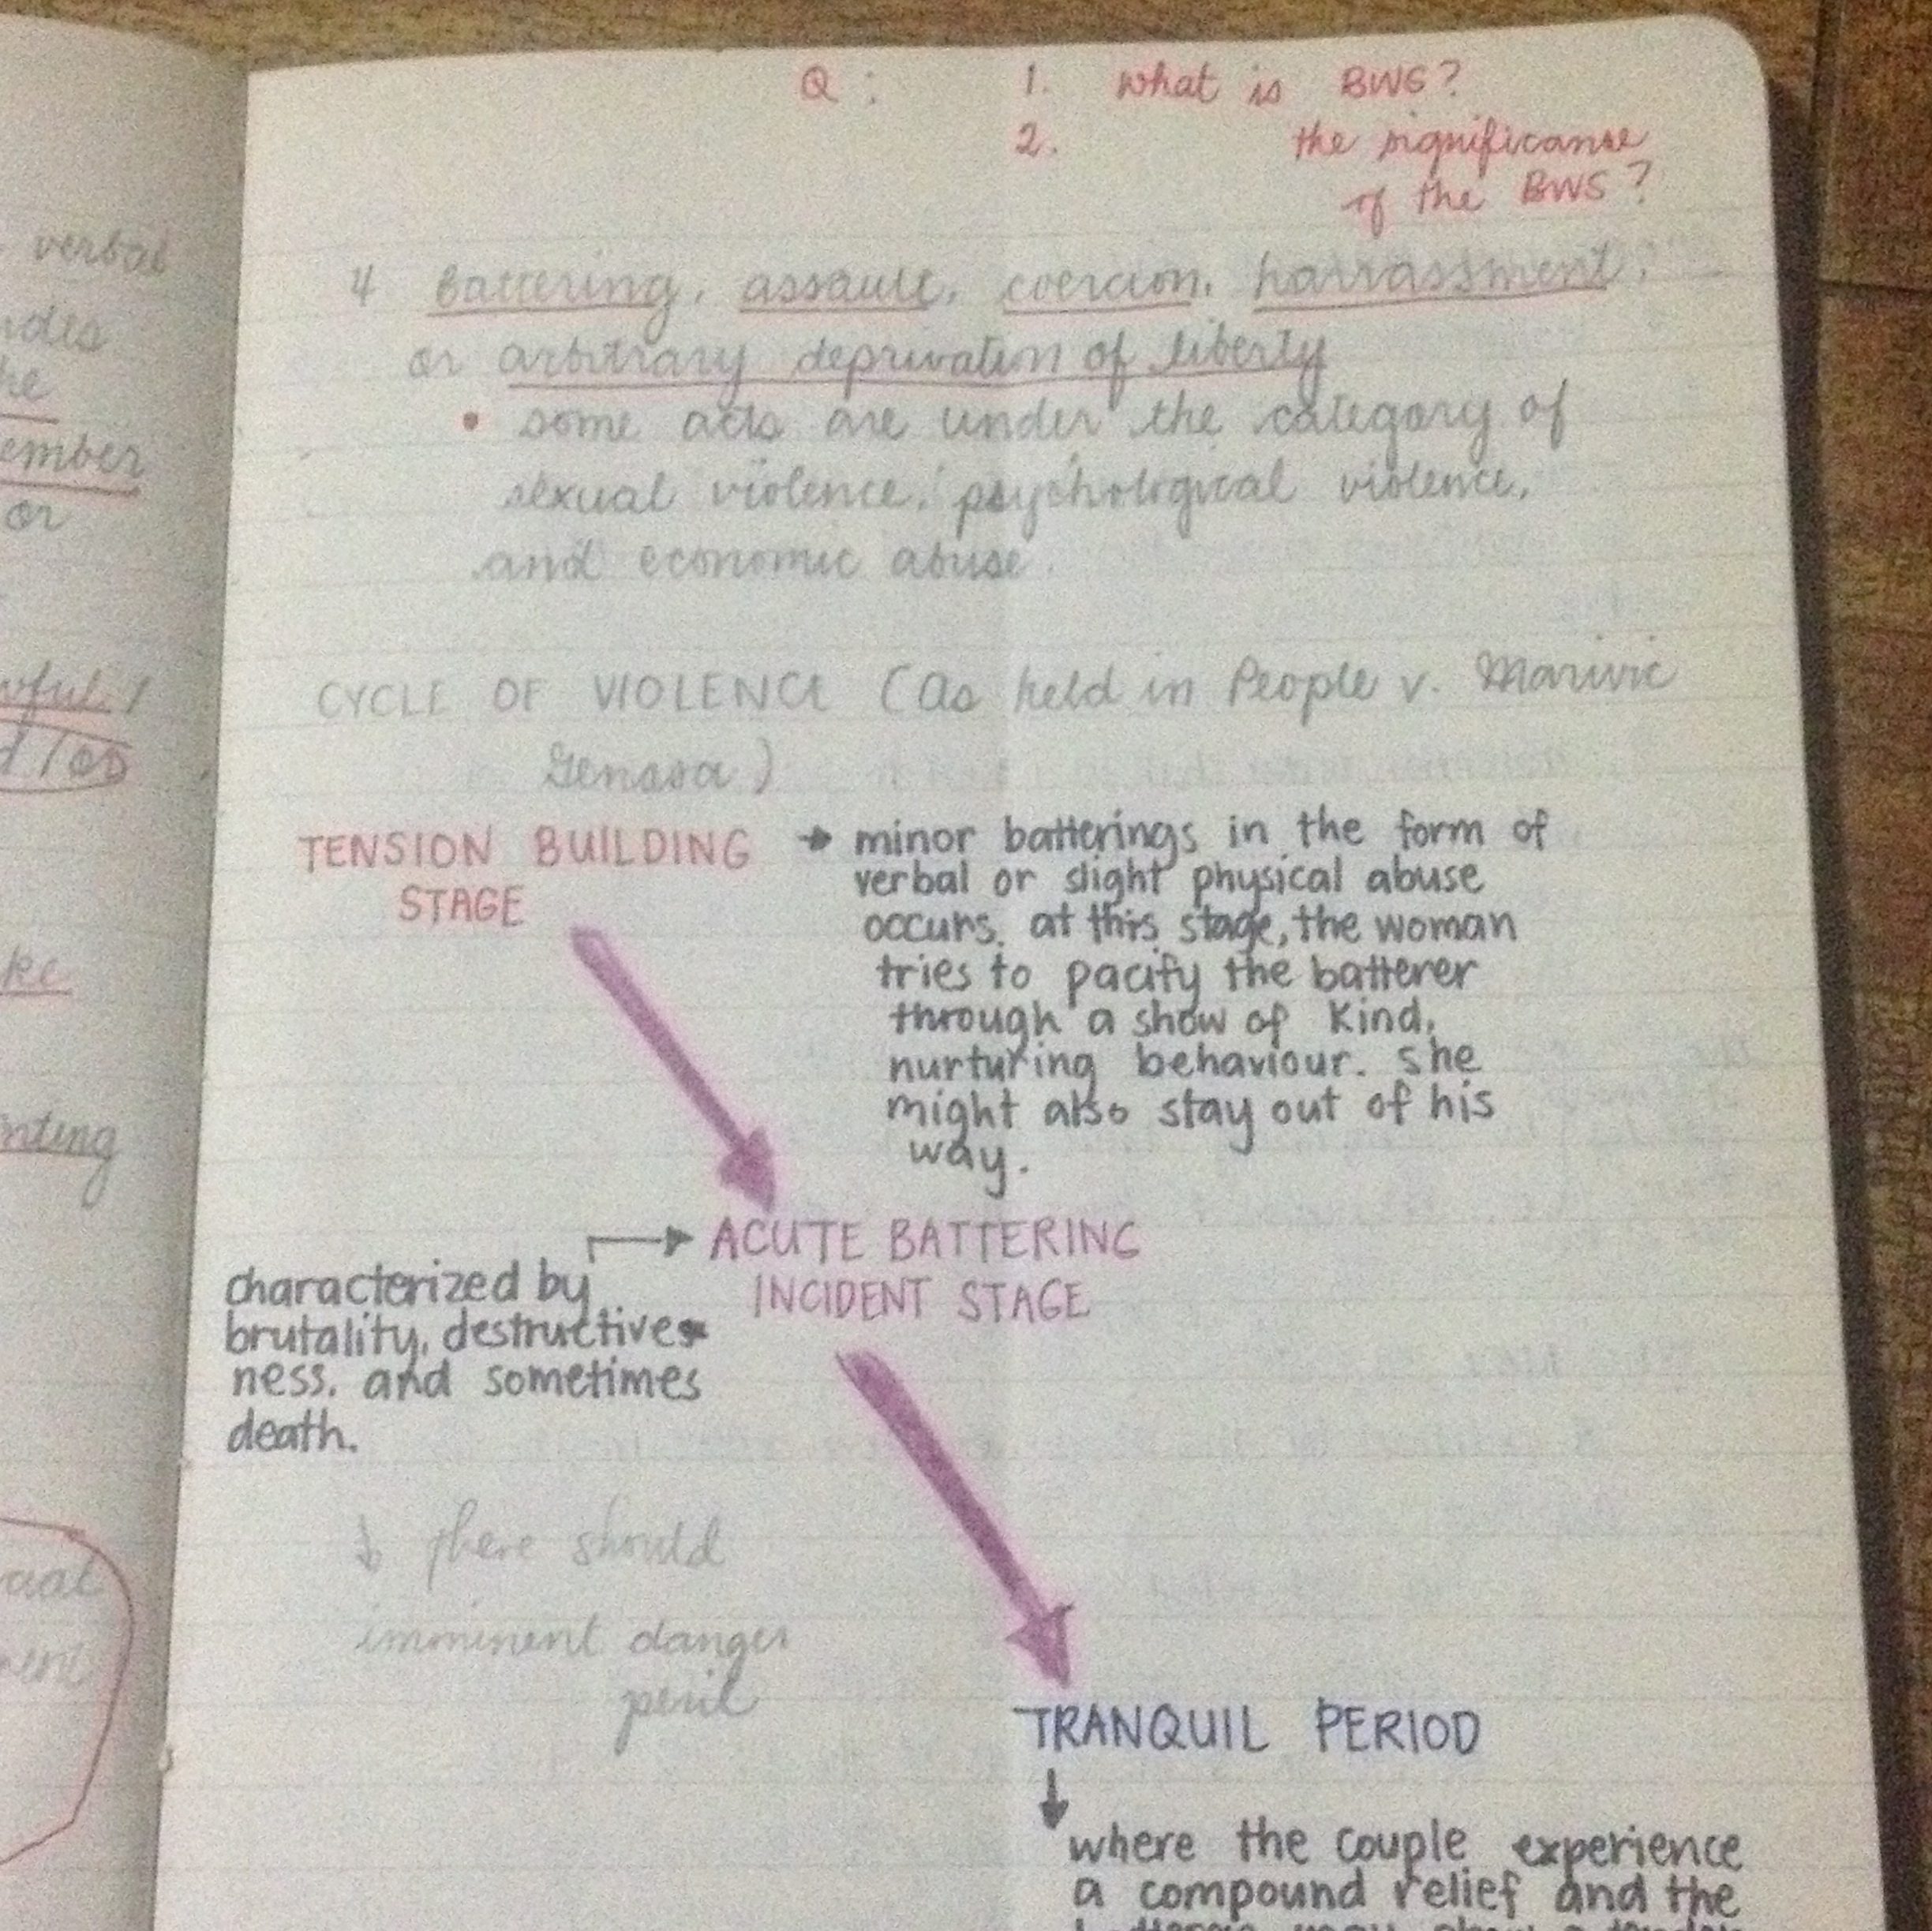 verbal
ember
or
nting
Q : 1. What is BWS?
2. the significanse
of the BWS?
4 Battering, assault, coercion, harrassment,
or arbitrary deprivation of liberty
• some acts are under the category of
sexual violence, psychological violence,
and economic abuse.
CYCLE OF VIOLENCE (As held in People v. Marivic
Genosa)
TENSION BUILDING
STAGE
→ minor batterings in the form of
verbal or slight physical abuse
occurs. at this stage, the woman
tries to pacify the batterer
through a show of kind,
nurturing behaviour. she
might also stay out of his
way.
ACUTE BATTERING
INCIDENT STAGE
characterized by
brutality, destructive-
ness, and sometimes
death.
↳ there should
imminent danger
peril
TRANQUIL PERIOD
↓
where the couple experience
a compound relief and the